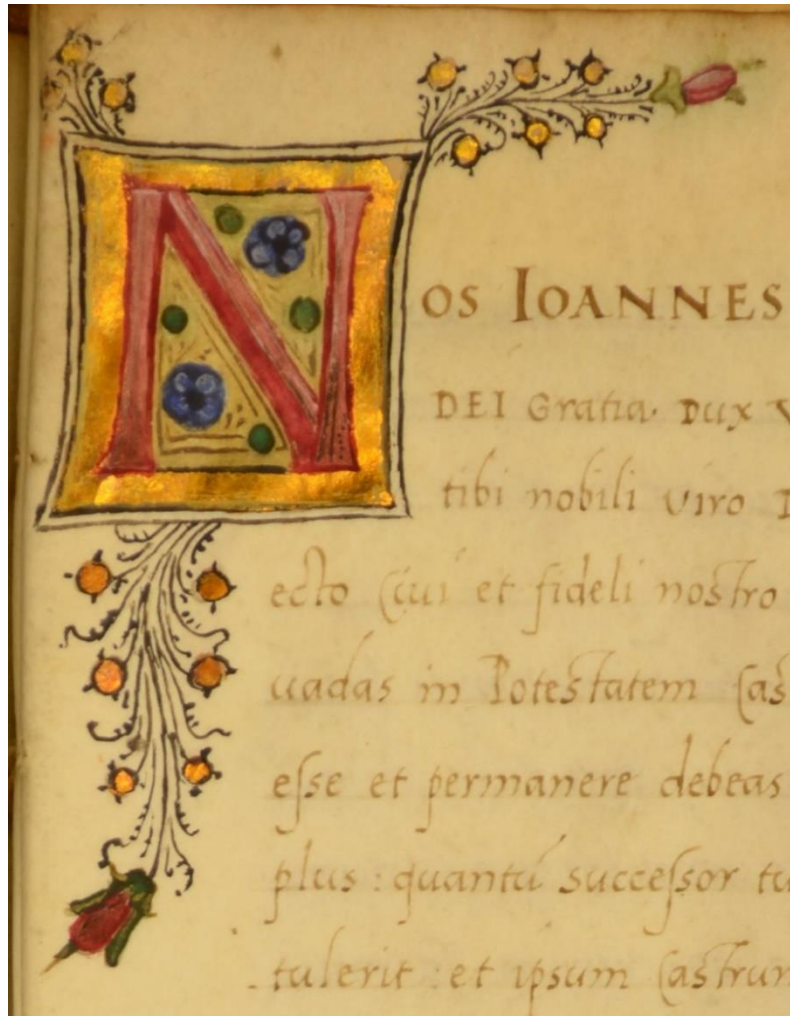 NOS IOANNES
DEI Gratia. DUX V
tibi nobili viro
ecto Ciui et fideli nostro
uadas in Potestatem Cas
esse et permanere debeas
plus : quantū successor tu
tulerit : et ipsum Castrum